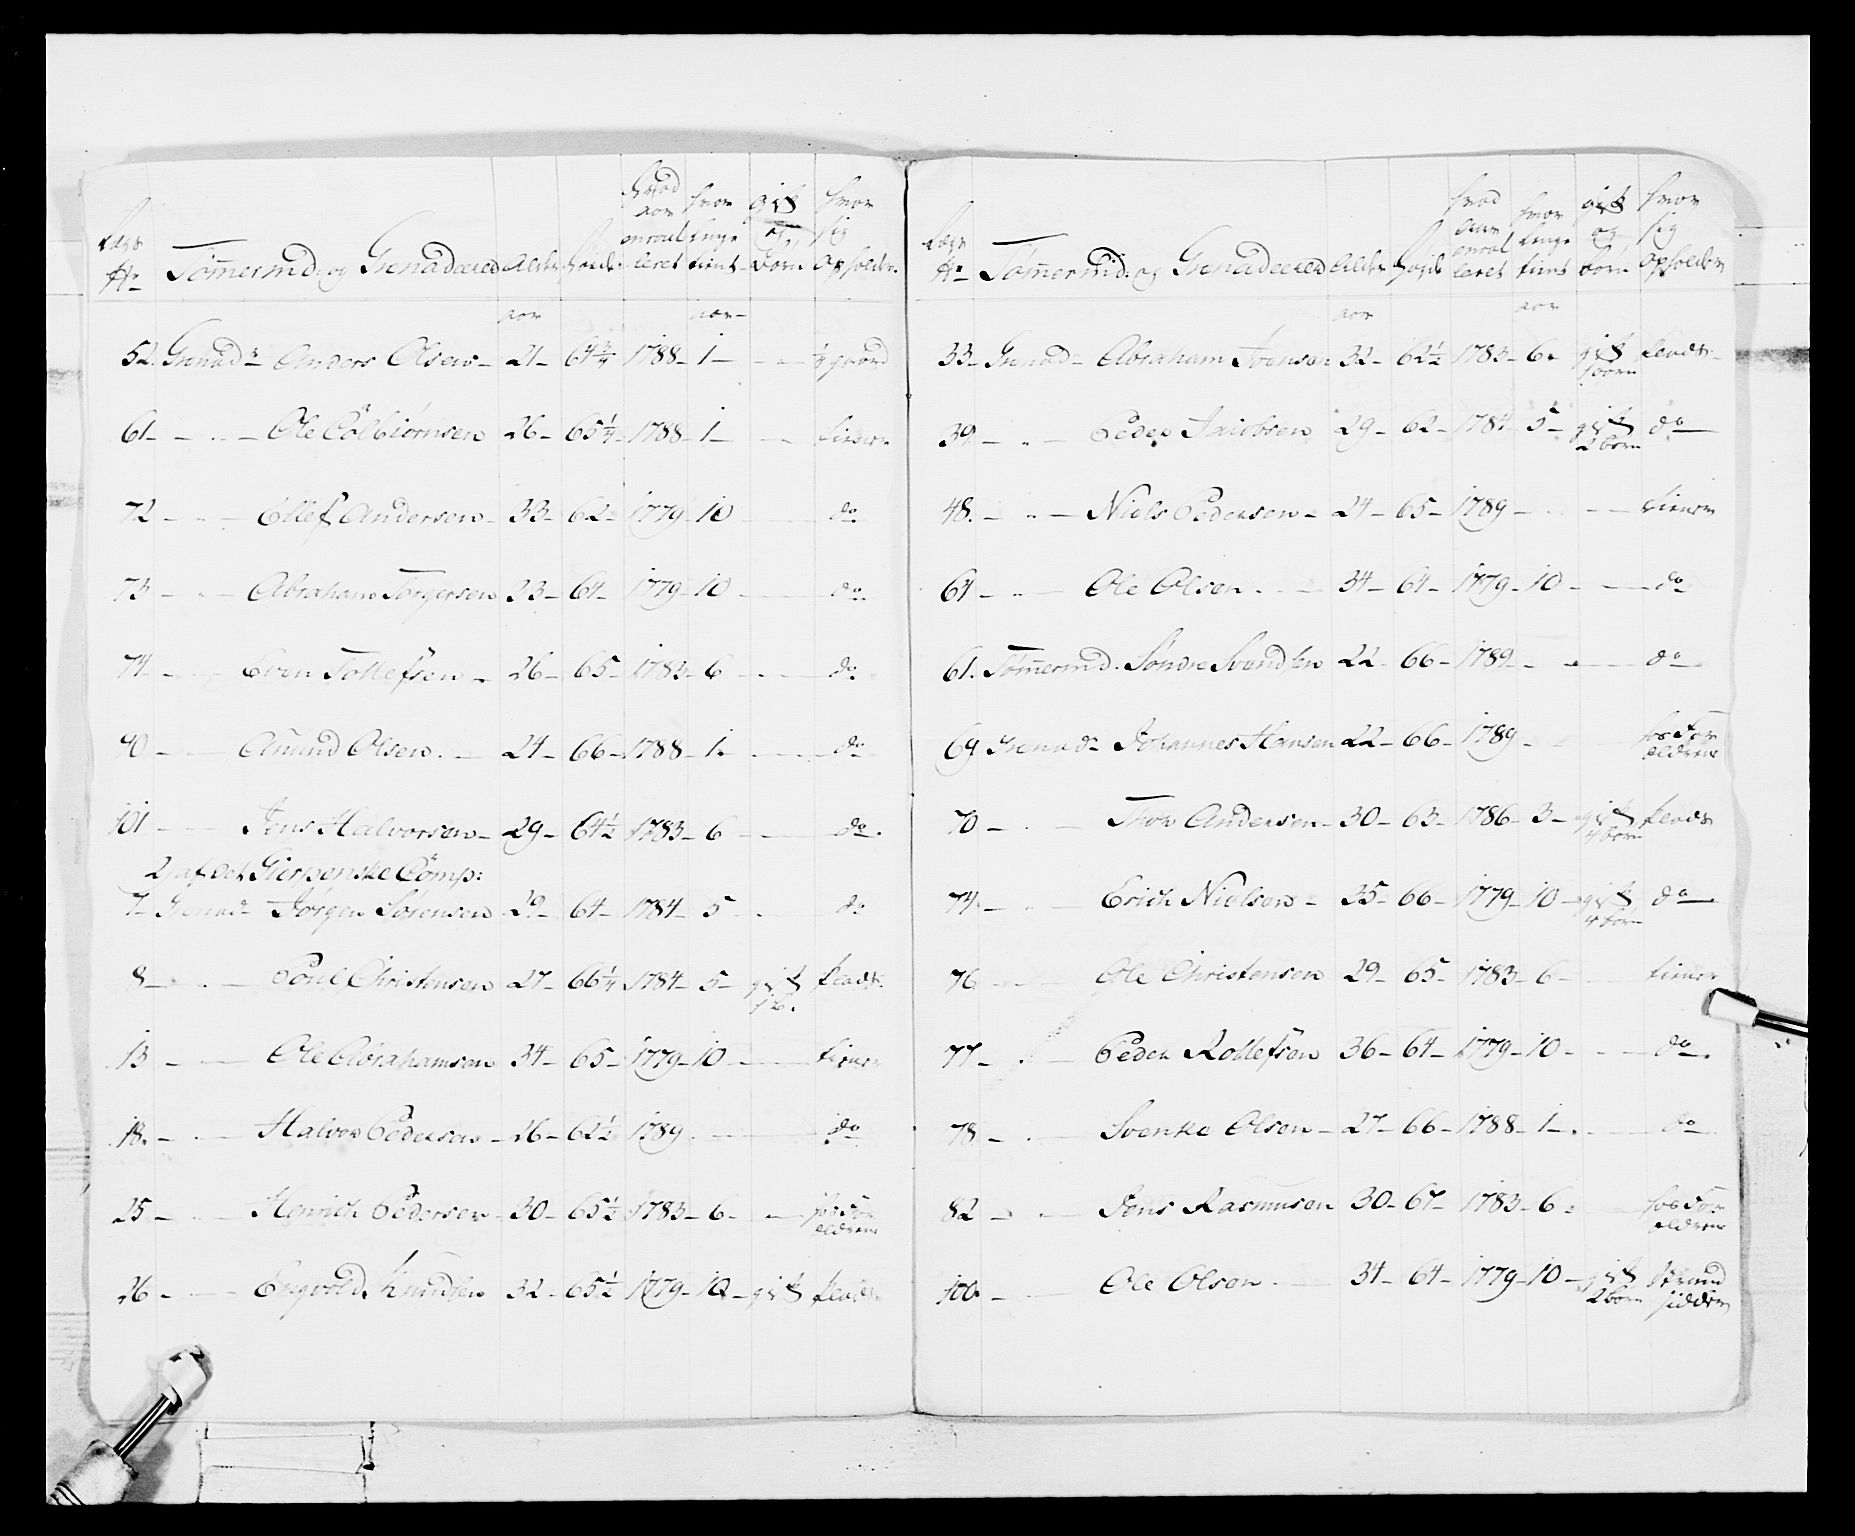 Lægs No Tømmermd: og Grenaderer Alder Høyde Hvad aar enroulleret hvor lenge tient gift og Børn hvor sig opholder
aar aar
52. Grenadr Anders Olsen 21 64 3/4 1788 1 - 1/4 gaard
61 - " - Ole Colbiørnsen 26 65 1/4 1788 1 - tiener
72 - " - Ellef Andersen 33 62 1779 10 - do
73 - " - Abraham Torgersen 33 64 1779 10 - do
74 - - Even Tollefsen 26 65 1783 6 - do
90 - - Amund Olsen 24 66 1788 1 - do
101 - - Jens Halvorsen 29 64 1/2 1783 6 - do
2) af det Gierpenske Comp:
7 Grenad: Jørgen Sørensen 29 64 1784 5 - do
8 - " - Poul Christensen 27 66 1/4 1784 5 gift 1 b. Pladts
13 - - Ole Abrahamsen 34 65 1779 10 - tiener
18. - - Halvor Pedersen 26 62 1/2 1789 - do
25 - - Henrich Pedersen 30 65 1/2 1783 6 - hos For ældrene
26 - - Engvold Knudsen 32 65 1/2 1779 10 gift Pladts
Lægs No Tømmermd: og Grenadeerer Alder Høyde hvad aar enroulleret hvor lenge tient gift og børn hvor sig opholder
aar aar
33 Grenadr Abraham Svensen 32 62 1/2 1783 6 gift 1 børn Pladts
39 - " - Peder Jacobsen 29 62 1784 5 gift 2 børn do
48. - " - Niels Pedersen 24 65 1789 - tiener
61 - " - Ole Olsen 34 64 1779 10 - do
61. Tømmermd. Søndre Svendsen 22 66 1789 - do
69 Grenadr Johannes Hansen 22 66 1789 - hos For ældrene
70 - - Thor Andersen 30 63 1786 3 gift 4 børn Pladts
74 - " - Erich Nielsen 35 66 1779 10 gift 4 børn do
76 - - Ole Christensen 29 65 1783 6 - tiener
77 - " - Peder Rollefsen 36 64 1779 10 - do
78 - - Svenke Olsen 27 66 1788 1 - do
82 - - Jens Rasmusen 30 67 1783 6 - hos For ældrene
100 - - Ole Olsen 34 64 1779 10 gift 2 børn Strand sidder